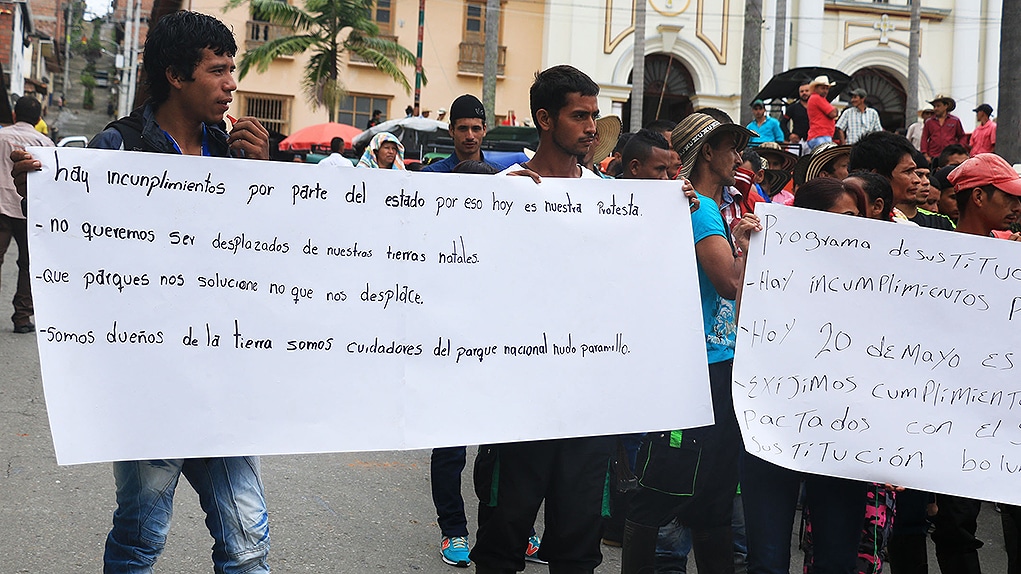 hay incunplimientos por parte del estado por eso hoy es nuestra Protesta.
- no queremos ser desplazados de nuestras tierras natales.
- Que parques nos solucione no que nos desplace.
- Somos dueños de la tierra somos cuidadores del parque nacional nudo paramillo.
Programa de susTiTuc
- Hay incumplimientos p
- Hoy 20 de Mayo es
- exijimos cumplimient
pactados con el
susTiTución bolun